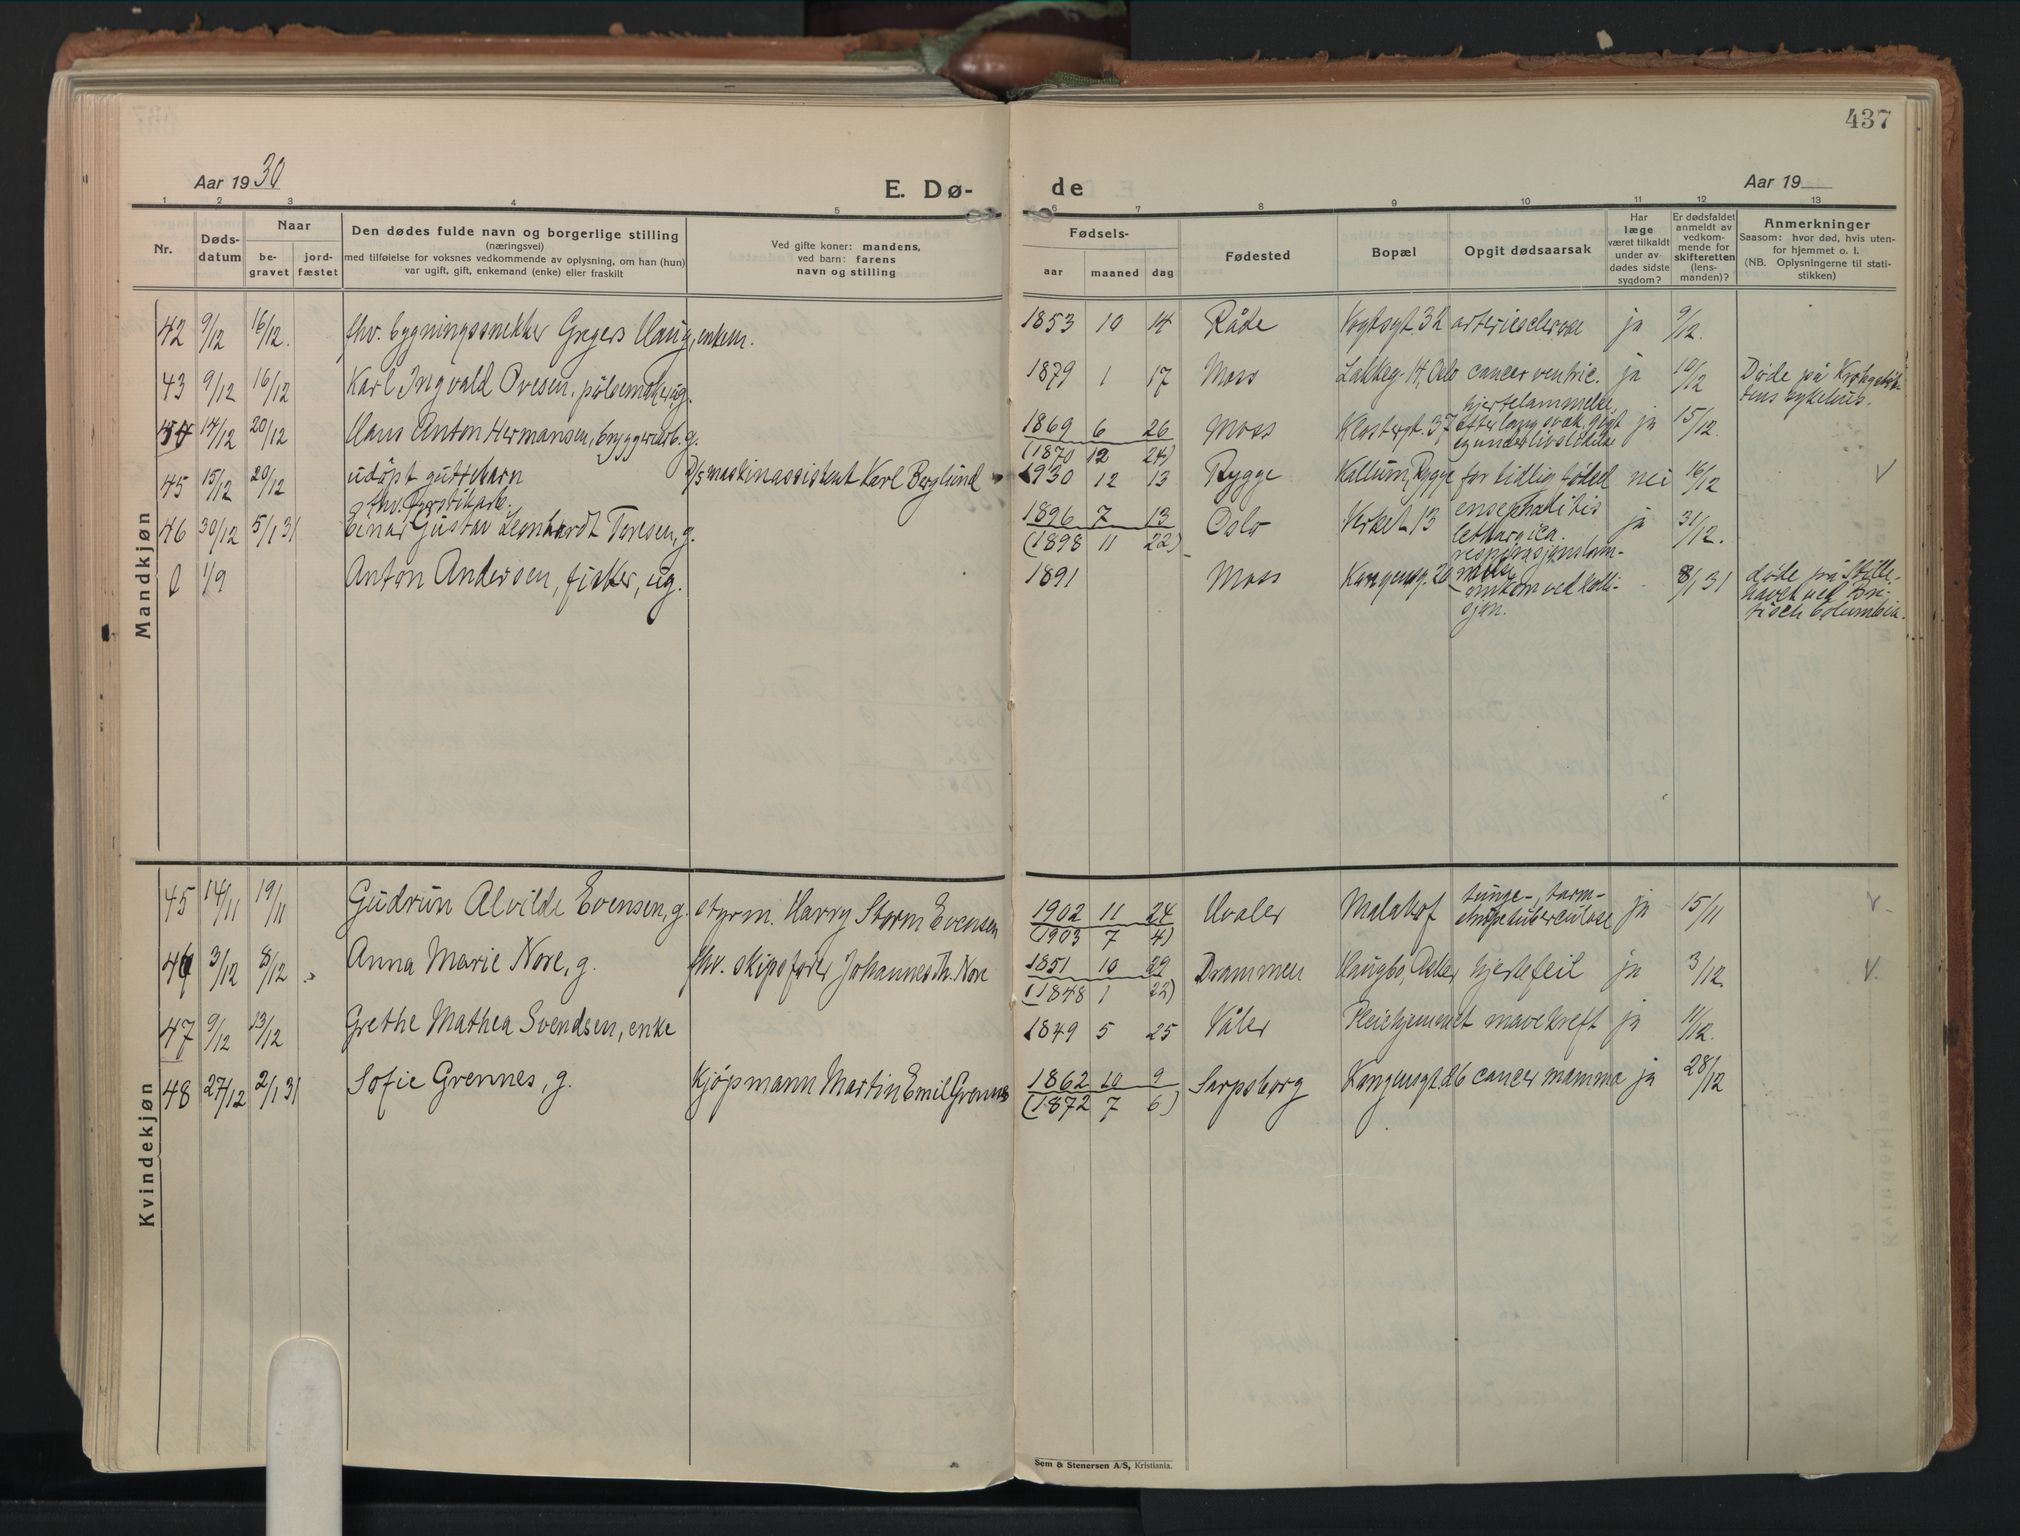 437
Aar 1930
E. Dø-
de
Aar 19
1 2 3 4 5 6 7 8 9 10 11 12 13
Nr.
Døds-
datum
Naar
be-
gravet
jord-
fæstet
Den dødes fulde navn og borgerlige stilling
(næringsvei)
med tilføielse for voksnes vedkommende av oplysning, om han (hun)
var ugift, gift, enkemand (enke) eller fraskilt
Ved gifte koner: mandens,
ved barn: farens
navn og stilling
Fødsels-
aar maaned dag
Fødested
Bopæl
Opgit dødsaarsak
Har
læge
været tilkaldt
under av-
dødes sidste
sygdom?
Er dødsfaldet
anmeldt av
vedkom-
mende for
skifteretten
(lens-
manden)?
Anmerkninger
Saasom: hvor død, hvis uten-
for hjemmet o. l.
(NB. Oplysningerne til stati-
stikken)
Mandkjøn
42 9/12 16/12. fhv. bygningssnekker Gregers Haug, enkem. 1853 10 14 Råde Vogtsgt. 32 arteriesclerose ja 9/12.
43 9/12 16/12 Karl Ingvald Ovesen, pølsemaker, ug. 1879 1 17 Moss Lakkeg. 14, Oslo cancer ventric. ja 10/12 Døde på Krohgstøt-
tens sykehus.
44 14/12 20/12 Hans Anton Hermansen, bryggeriarb. g. 1869 6 26 Moss Klostergt. 37 hjertelammelse
efter langvak, gigt
og underlivslidelse ja 15/12.
(1870 12 24)
45 15/12 20/12 udøpt guttebarn D/S maskinassistent Karl Berglund 1930 12 13 Rygge Kallum, Rygge for tidlig födsel nei 16/12
fhv.
46 30/12 5/1 31 Einar Gustav Leonhardt Toresen, g. 1896 7 13 Oslo Verket 13 encephalitis
lethargica. ja 31/12.
(1898 11 22)
0 1/9 Anton Andersen, fisker, ug. 1891 Moss Kongensg. 20 respirasjonslam-
melse
- omkom ved kolli-
sjon. - 8/1 31 døde på Stille-
havet ved Bri-
tisch Columbia.
Kvindekjøn
45 14/11 19/11 Gudrun Alvilde Evensen, g. styrm. Harry Storm Evensen 1902 11 24 Hvaler Malakof lunge-, tarm-
strupetuberculose ja 15/11
(1903 7 4)
46 3/12 8/12 Anna Marie Nore, g. fhv. skipsfører Johannes Th. Nore 1851 10 29 Drammen Haugbo, Asker hjertefeil ja 3/12.
(1848 1 22)
47 9/12 13/12 Grethe Mathea Svendsen, enke 1849 5 25 Våler Pleiehjemmet mavekreft ja 11/12.
48 27/12 2/1 31 Sofie Grennes, g. Kjöpmann Martin Emil Grennes 1862 10 9 Sarpsborg Kongensgt 26 cancer mamma ja 28/12
(1872 7 6)
Sem & Stenersen A/S, Kristiania.